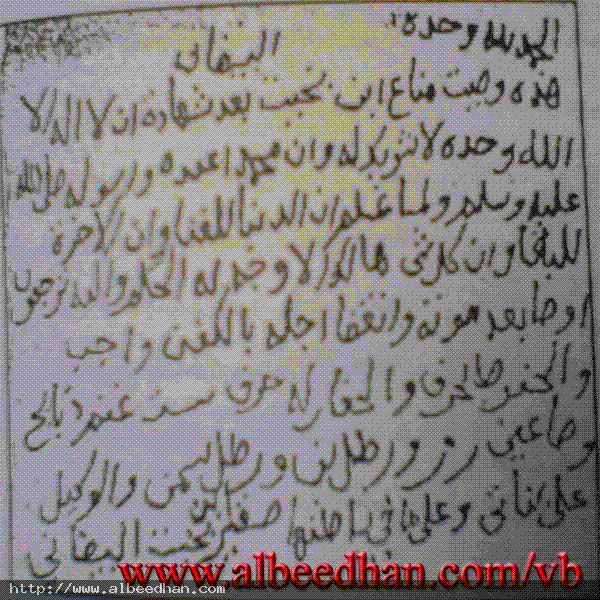 الحمد لله وحده
اليفاني
هذه وصيت مناع ابن بخيت بعد شهادة ان لا اله الا
الله وحده لا شريك له وان محمد اعبده وارسوله صلى الله
عليه وسلم ولما علم ان الدنيا للفنا وان الاخرة
للبقا وان كل شي هالك الا وجهه له الحكم واليه ترجعون
اوصا بعد موته وانقضا اجله بالكفن واجب
والحفر صالحرف والحفار له حرف ست غنم ذبايح
وصاعين رز ورطل بن ورطل سمن والوكيل
على اناثي وعلى ما في باطنها صغير ابن بخيت اليفاني
www.albeedhan.com/vb
http://www.albeedhan.com